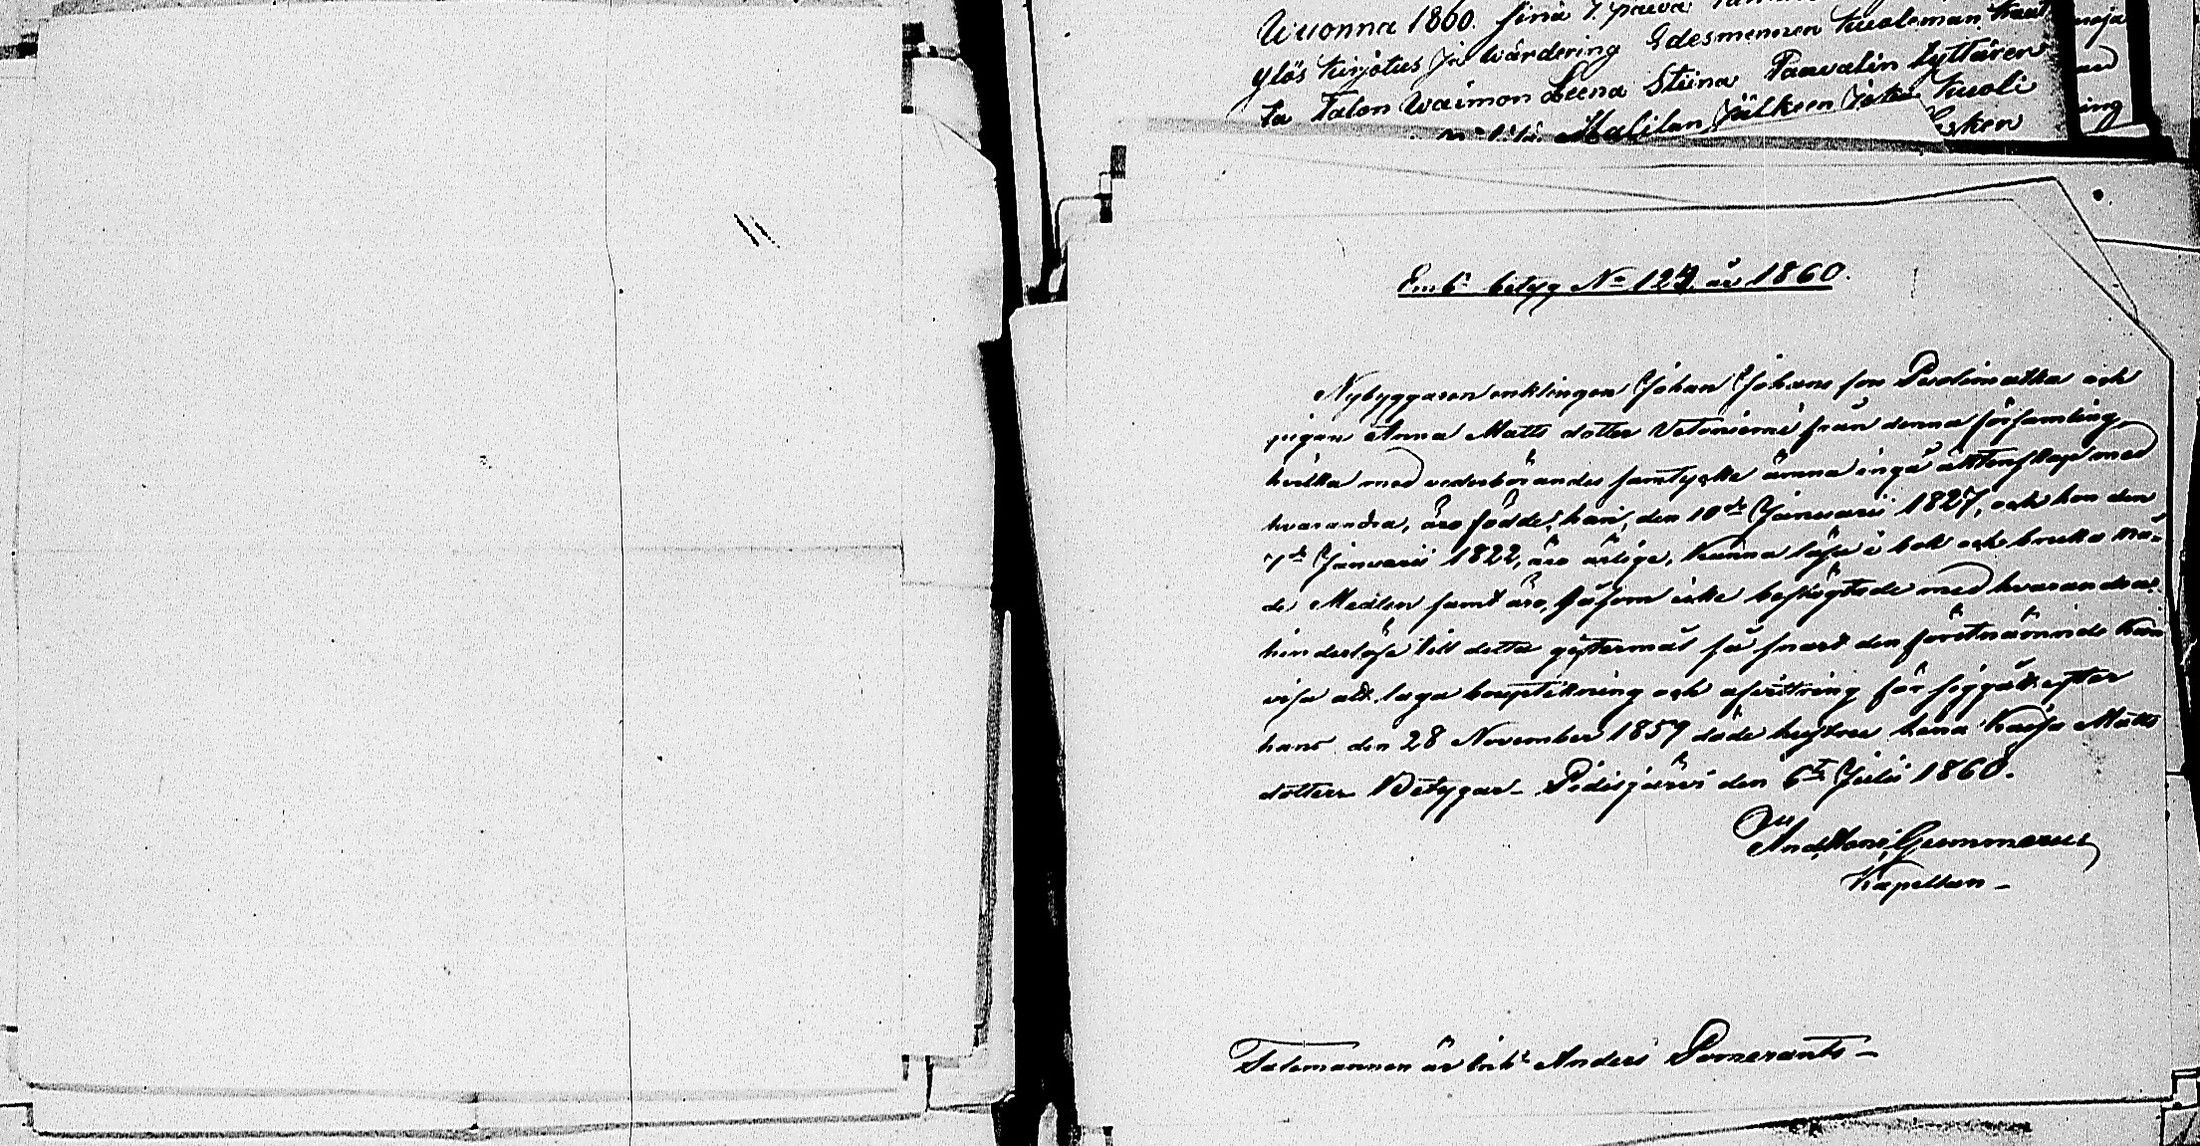 Wuonna 1860. sinä 7. päivä
ylös kirjotus Ja Wärdering Edesmennen tuoleman kaut
ta Talon Waimon Leena Stiina Paavalin tyttären
Malilan Jälkeen Joka kuoli
Lesken
ing
Emb. betyg No 124 år 1860.
Nybyggaren enklingen Johan Johans son Puolimatka och
pigan Anna Matts dotter Vetoniemi från denna församling,
hvilka med vederbörandes samtycke ämna ingå äktenskap med
hvarandra, äro födde: han, den 10de Januarii 1827, och hon den
7de Januarii 1822, äro ärlige, kunna läsa i bok och bruka Nå-
de Medlen samt äro, såsom icke beslägtade med hvarandra,
hinderlöse till detta giftermål så snart den förstnämnde kan
visa att laga bouptekning och afvittring för siggått efter
hans den 28 November 1859 döde hustru Lena Kaisa Matts
dotter. Betygar. Pidisjärvi den 6te Julii 1860.
And. Gummerus
Kapellan
Talemannen är Anders Pomerants